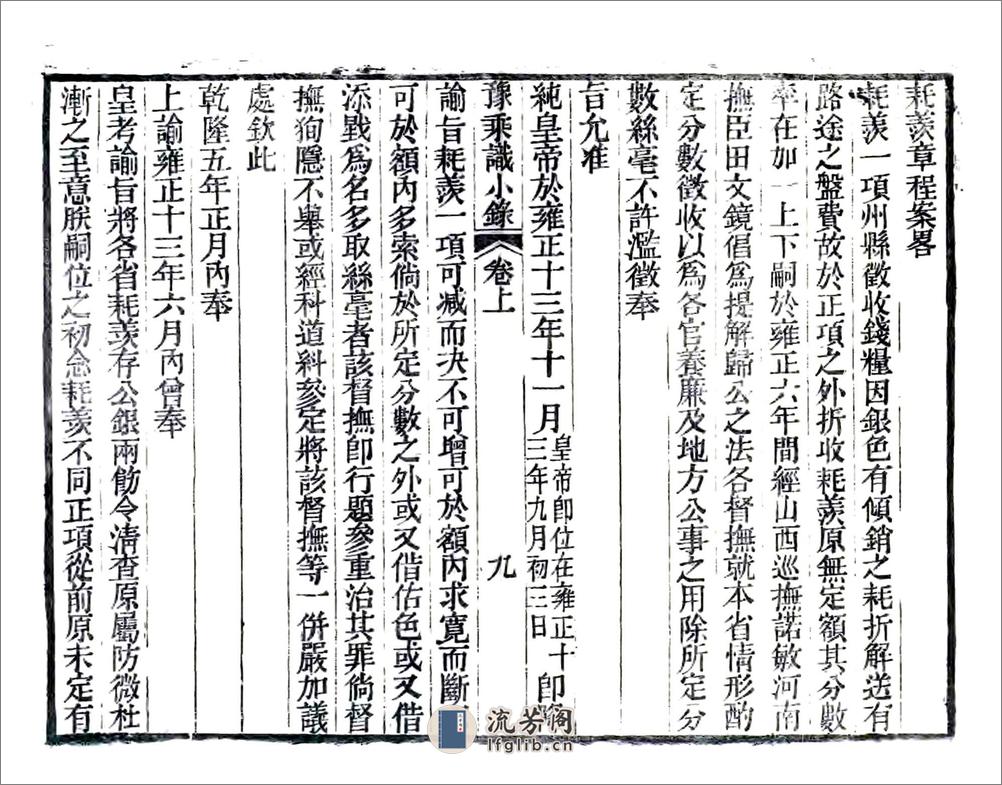 耗羨章程案畧
耗羨一項州縣徵收錢糧因銀色有傾銷之耗折解送有
路途之盤費故於正項之外折收耗羨原無定額其分數
率在加一上下嗣於雍正六年間經山西巡撫諾敏河南
撫臣田文鏡倡為提解歸公之法各督撫就本省情形酌
定分數徵收以為各官養廉及地方公事之用除所定分
數絲毫不許濫徵奉
旨允准
純皇帝於雍正十三年十一月
皇帝卽位在雍正十
三年九月初三日
卽
豫乘識小錄
卷上
九
諭旨耗羨一項可减而决不可增可於額內求寬而斷
可於額內多索倘於所定分數之外或又借估色或又借
添戥為名多取絲毫者該督撫卽行題參重治其罪倘督
撫狥隱不舉或經科道糾參定將該督撫等一併嚴加議
處欽此
乾隆五年正月內奉
上諭雍正十三年六月內曾奉
皇考諭旨將各省耗羨存公銀兩飭令清查原屬防微杜
漸之至意朕嗣位之初念耗羨不同正項從前原未定有
流芳阁
lfglib.cn